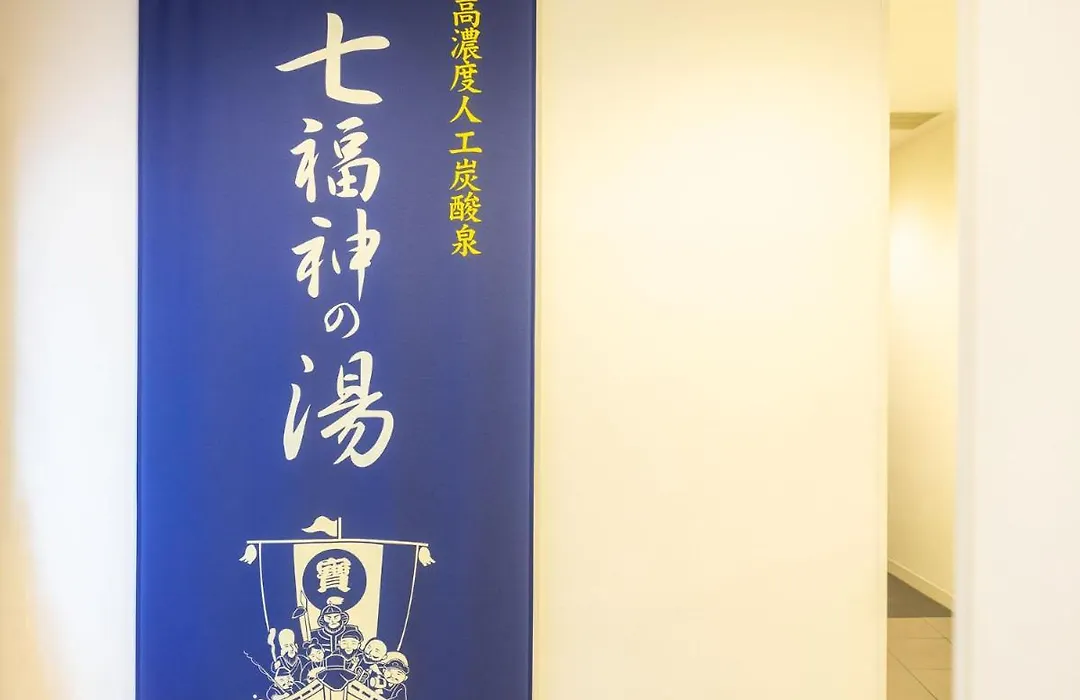 高濃度人工炭酸泉
七福神の湯
寶